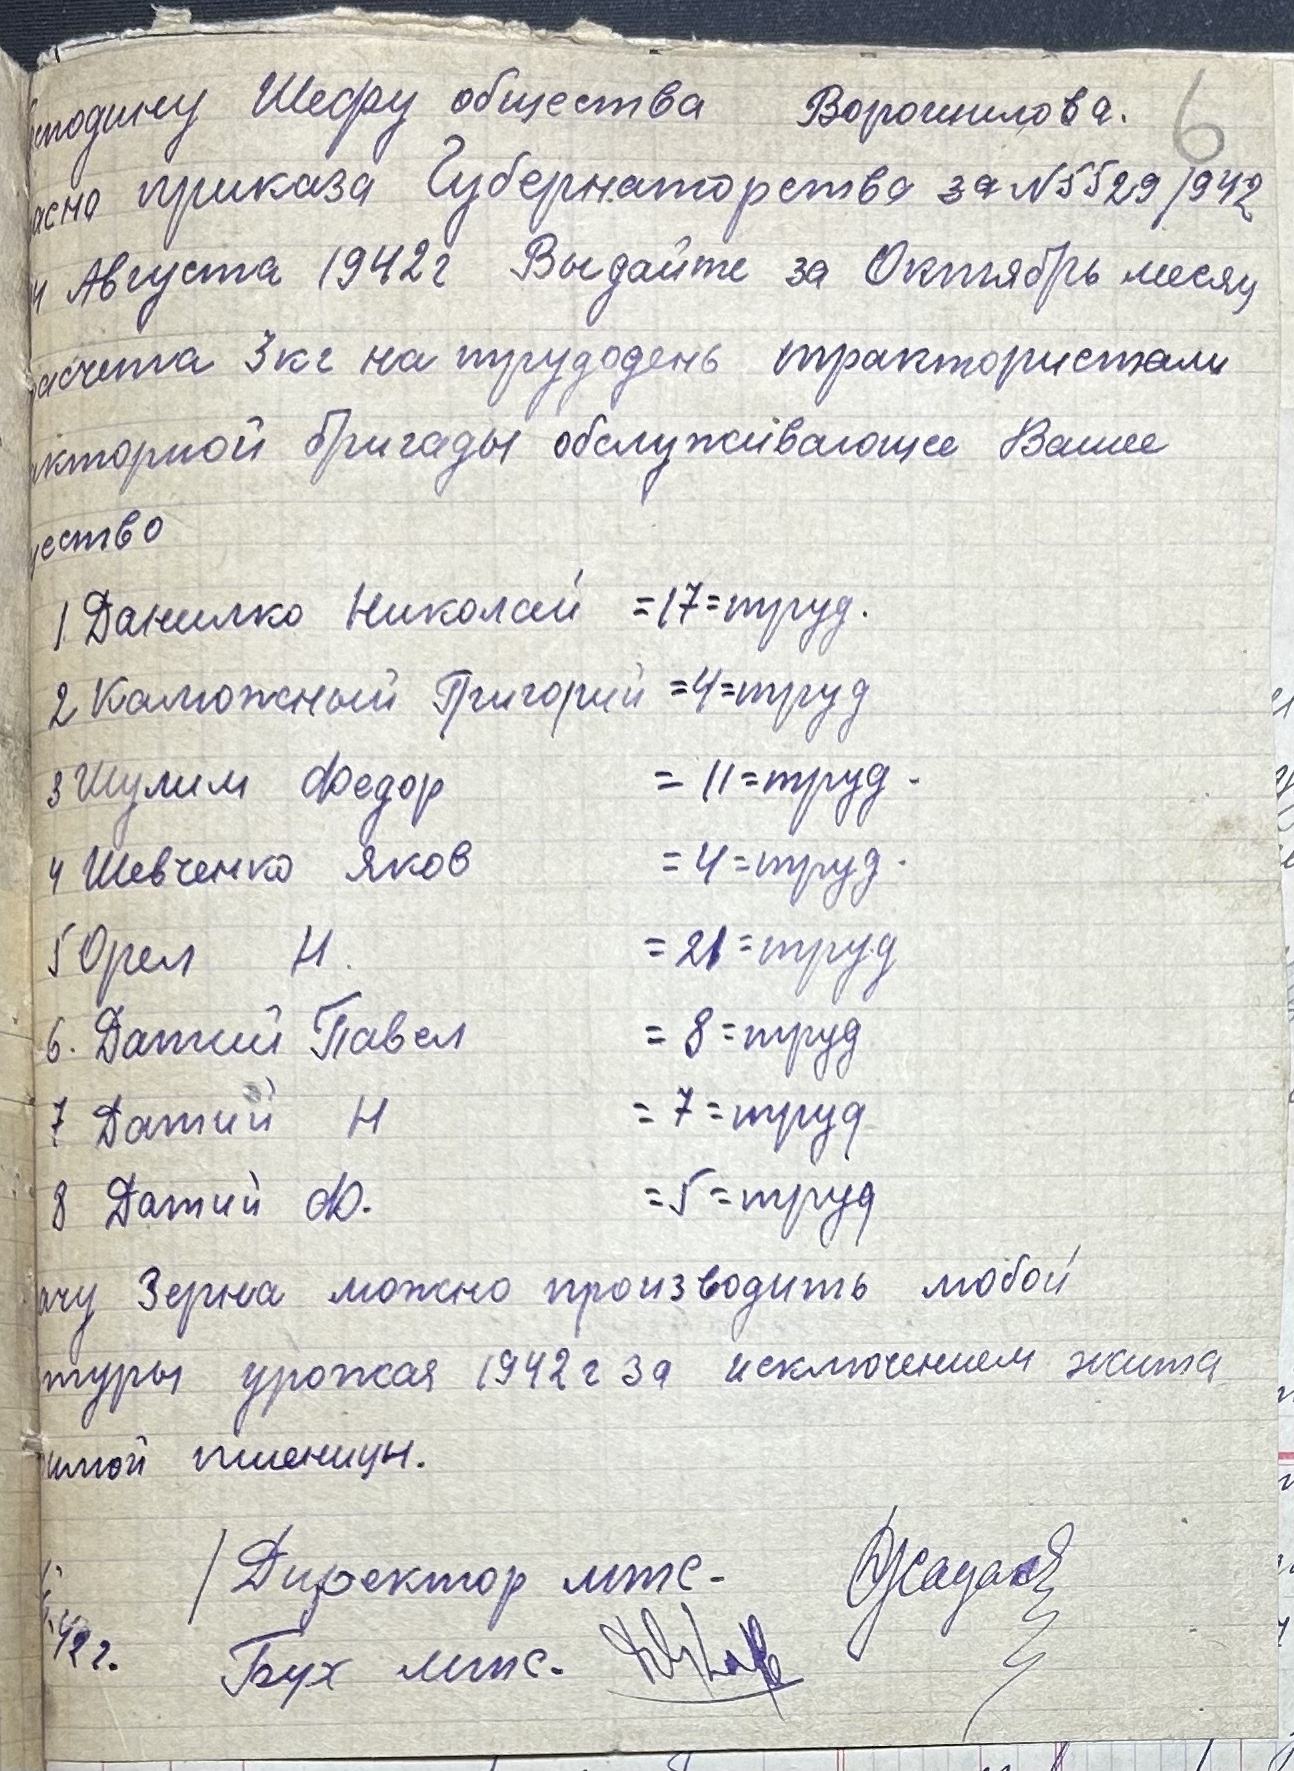 6
сподину Шефу общества Ворошилова.
асно приказа Губернаторства за N 5529/942
Августа 1942г Выдайте за Октябрь месяц
расчета 3кг на трудодень трактористам
акторной бригады обслуживающее Ваше
чество
1 Данилко Николай =17= труд.
2 Калюжный Григорий =4= труд
3 Шулим Федор = 11= труд.
4 Шевченко Яков =4= труд.
5 Орел Н. = 21= труд
6. Датий Павел = 8= труд
7 Датий Н = 7= труд
8 Датий Ф. =5= труд
ачу Зерна можно производить любой
туры урожая 1942г за исключением жита
имой пшеницы.
/ Директор мтс-
42г.
Бух мтс-